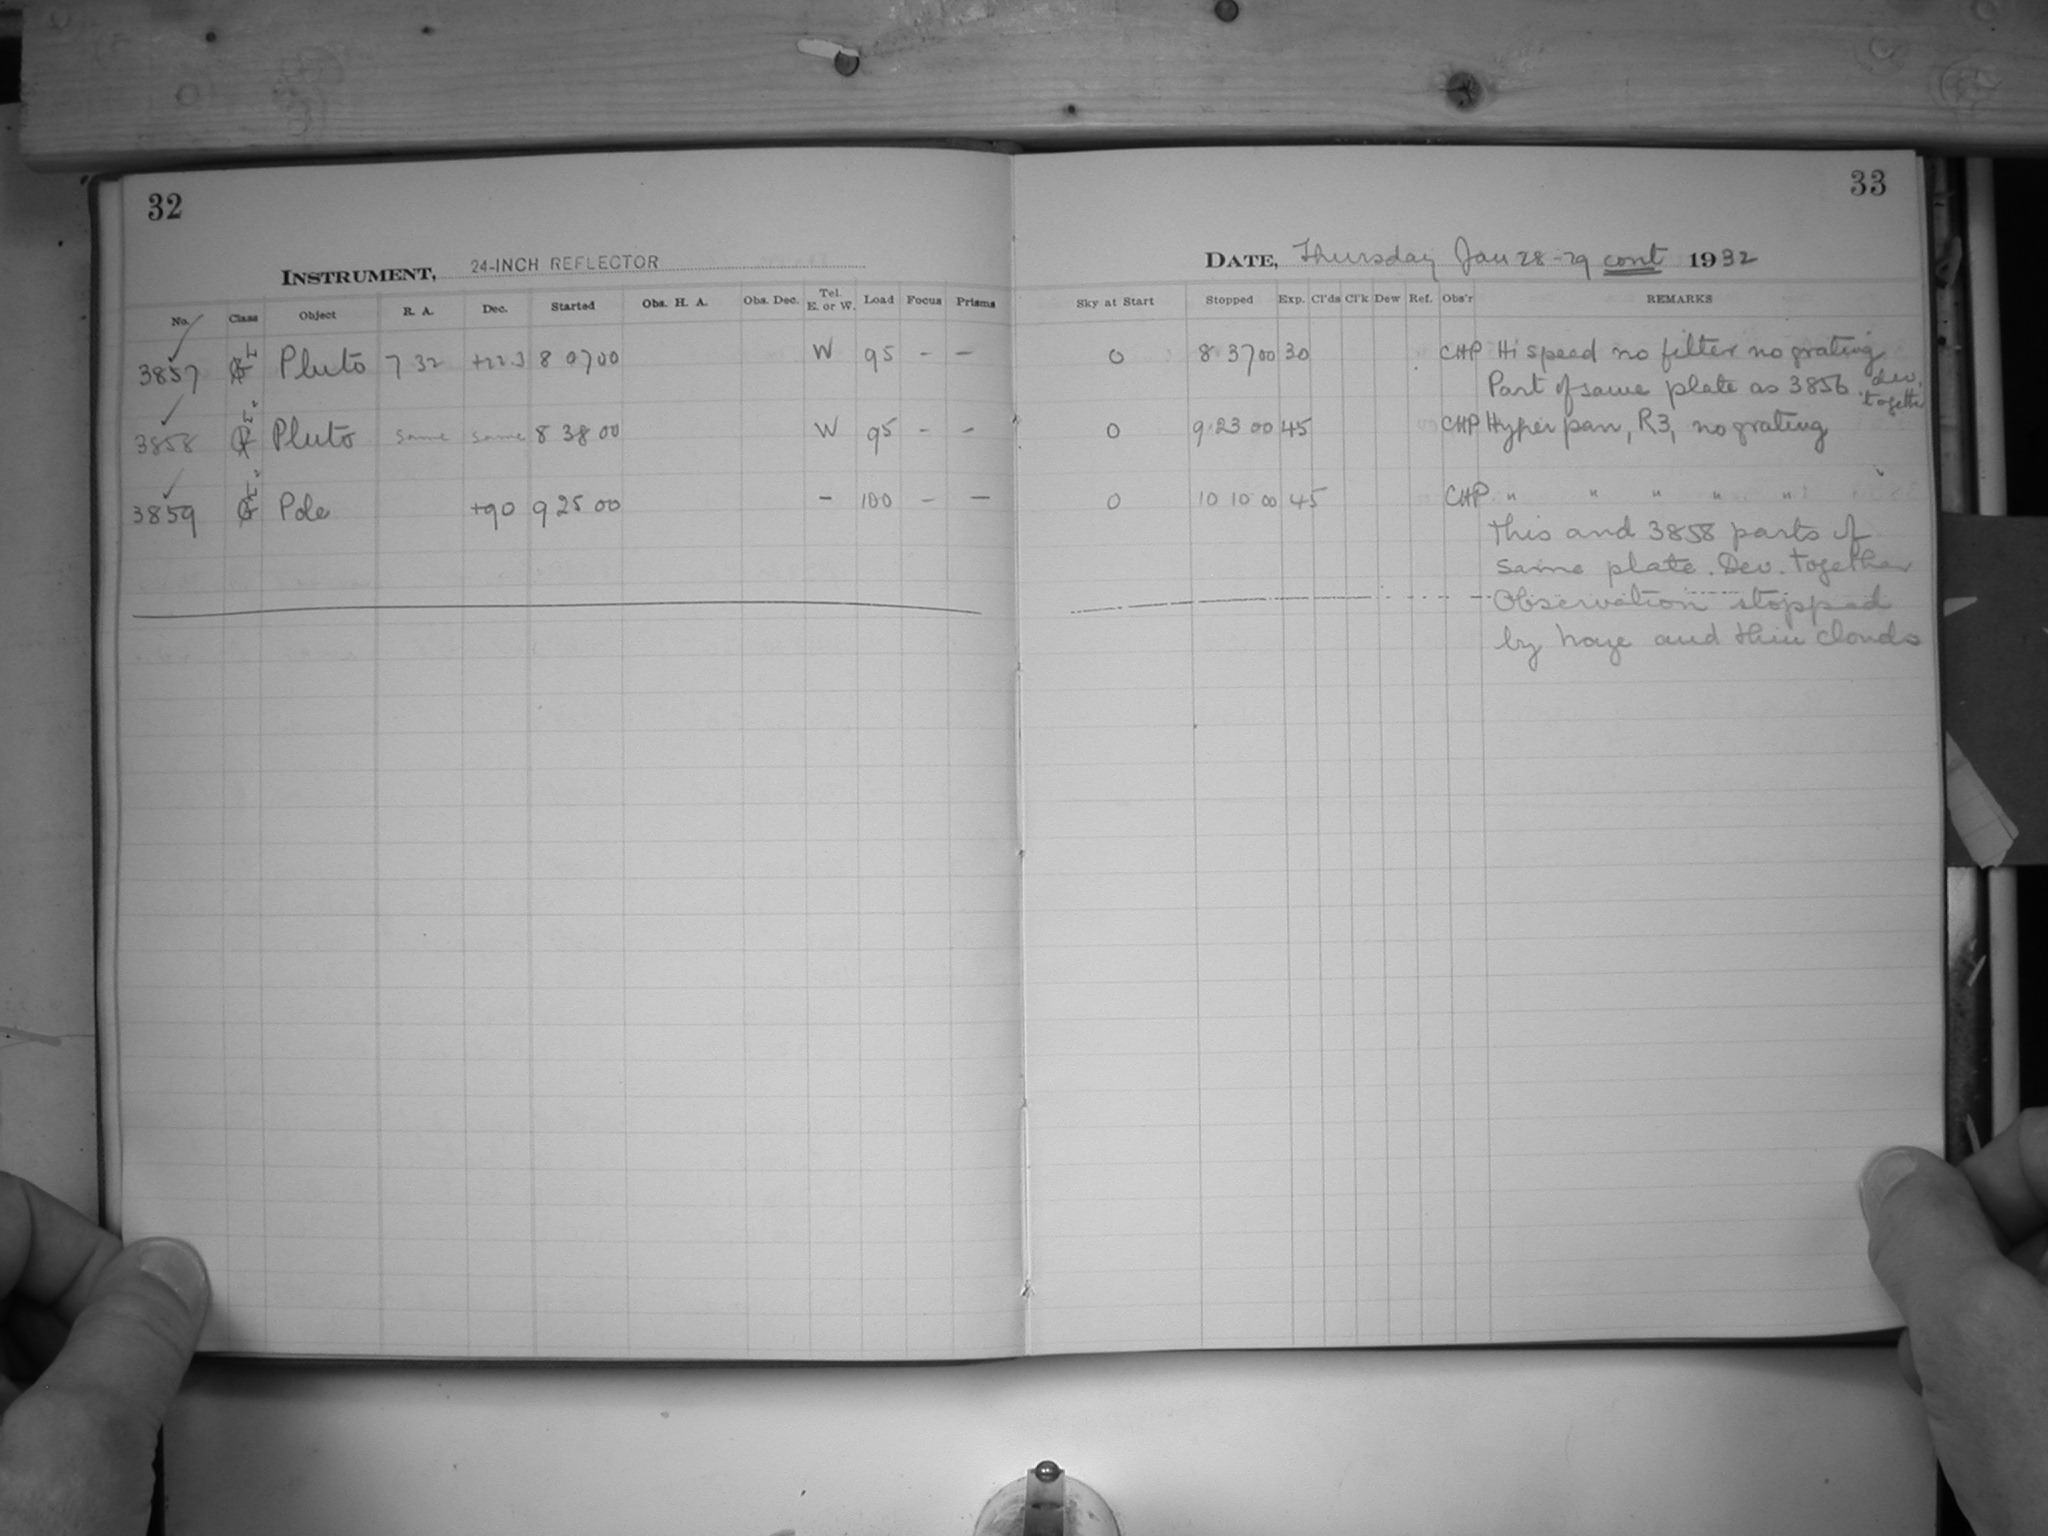 32
INSTRUMENT, 24-INCH REFLECTOR
No. Class Object R. A. Dec. Started Obs. H. A. Obs. Dec. Tel. E. or W. Load Focus Prisms
3857 Pluto 7 32 +22.3 8 07 00 W 95 - -
3858 Pluto same same 8 38 00 W 95 - -
3859 Pole +90 9 25 00 - 100 - -
33
DATE, Thursday Jan 28-29 cont 1932
Sky at Start Stopped Exp. Cl'ds Cl'k Dew Ref. Obs'r REMARKS
0 8 37 00 30 CHP Hi speed no filter no grating
Part of same plate as 3856. dev.
together
0 9 23 00 45 CHP Hyper pan, R3, no grating
0 10 10 00 45 CHP " " " " " "
This and 3858 parts of
same plate. Dev. together
Observation stopped
by haze and thin clouds